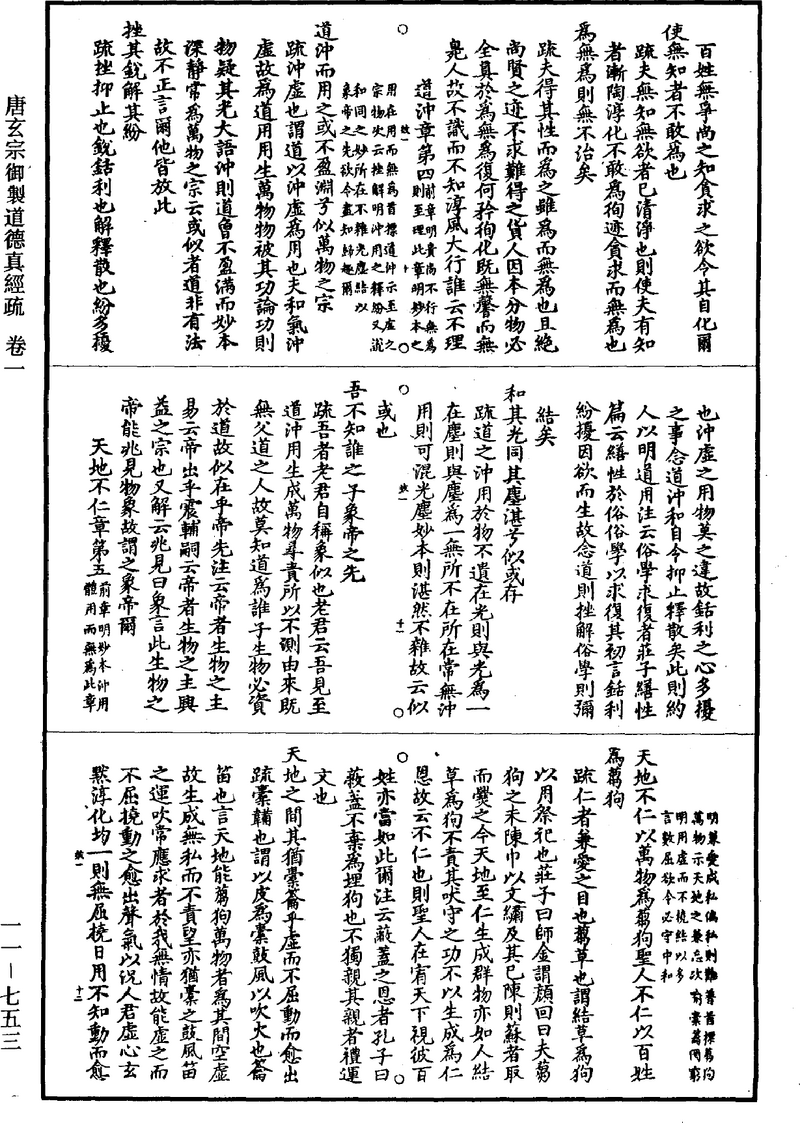 唐玄宗御製道德真經疏　卷一
百姓無爭尚之知貪求之欲令其自化爾
使無知者不敢為也
疏夫無知無欲者已清淨也則使夫有知
者漸陶淳化不敢為徇迹貪求而無為也
為無為則無不治矣
疏夫得其性而為之雖為而無為也且絕
尚賢之迹不求難得之貨人因本分物必
全真於為無為復何矜徇化既無馨而無
臭人故不識而不知淳風大行誰云不理
道沖章第四前章明貴尚不行無為
則至理此章明妙本之
用在用而無為首標道沖示至虛之
宗物次云挫解明沖用之釋紛又說
和同之妙所在不雜光塵結以
象帝之先欲令盡知歸趣爾
道沖而用之或不盈淵兮似萬物之宗
疏沖虛也謂道以沖虛為用也夫和氣沖
虛故為道用用生萬物物被其功論功則
物疑其光大語沖則道曾不盈滿而妙本
深靜常為萬物之宗云或似者道非有法
故不正言爾他皆放此
挫其銳解其紛
疏挫抑止也銳銛利也解釋散也紛多擾
也沖虛之用物莫之違故銛利之心多擾
之事念道沖和自令抑止釋散矣此則約
人以明道用注云俗學求復者莊子繕性
篇云繕性於俗俗學以求復其初言銛利
紛擾因欲而生故念道則挫解俗學則彌
結矣
和其光同其塵湛兮似或存
疏道之沖用於物不遺在光則與光為一
在塵則與塵為一無所不在所在常無沖
用則可混光塵妙本則湛然不雜故云似
或也
吾不知誰之子象帝之先
疏吾者老君自稱象似也老君云吾見至
道沖用生成萬物尋責所以不測由來既
無父道之人故莫知道為誰子生物必資
於道故似在乎帝先注云帝者生物之主
易云帝出乎震輔嗣云帝者生物之主興
益之宗也又解云兆見曰象言此生物之
帝能兆見物象故謂之象帝爾
天地不仁章第五前章明妙本沖用
體用而無為此章
明兼愛成私偏私則難普首標芻狗
萬物示天地之兼忘次喻橐籥罔窮
明用虛而不撓結以多
言數屈欲令必守中和
天地不仁以萬物為芻狗聖人不仁以百姓
為芻狗
疏仁者兼愛之目也芻草也謂結草為狗
以用祭祀也莊子曰師金謂顏回曰夫芻
狗之未陳巾以文繡及其已陳則蘇者取
而爨之今天地至仁生成群物亦如人結
草為狗不責其吠守之功不以生成為仁
恩故云不仁也則聖人在宥天下視彼百
姓亦當如此爾注云蔽蓋之恩者孔子曰
蔽蓋不棄為埋狗也不獨親其親者禮運
文也
天地之間其猶橐籥乎虛而不屈動而愈出
疏橐韛也謂以皮為橐鼓風以吹火也籥
笛也言天地能芻狗萬物者為其間空虛
故生成無私而不責望亦猶橐之鼓風笛
之運吹常應求者於我無情故能虛之而
不屈撓動之愈出聲氣以況人君虛心玄
默淳化均一則無屈撓日用不知動而愈
一一－七五三